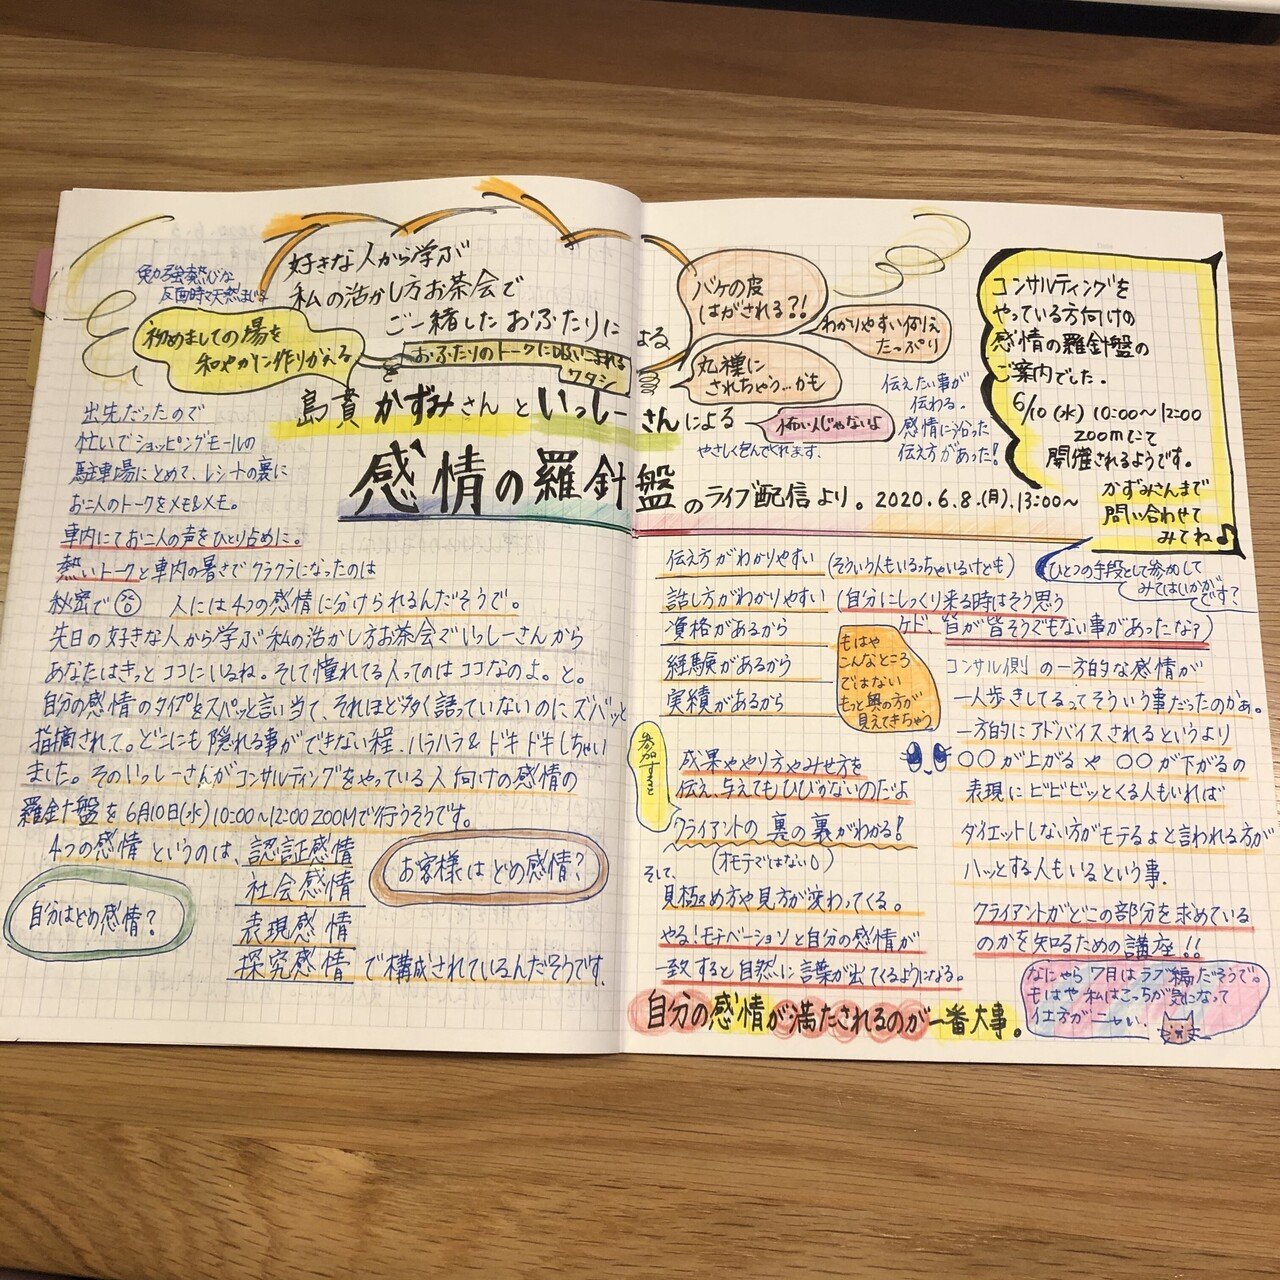 好きな人から学ぶ
私の活かし方お茶会で
ご一緒したおふたりに
よる
勉強熱心な
反面時々天然まじる
初めましての場を
和やかに作りかえる
おふたりのトークに吸いこまれる
ワタシ
島貫かずみさんといっしーさんによる
感情の羅針盤のライブ配信より。2020.6.8.(月).13:00~
バケの皮
はがされる?!
わかりやすい例え
たっぷり
丸裸に
されちゃう…かも
怖い人じゃないよ
やさしく包んでくれます.
伝えたい事が
伝わる.
感情に沿った
伝え方があった!
コンサルティングを
やっている方向けの
感情の羅針盤の
ご案内でした.
6/10(水)10:00~12:00
zoomにて
開催されるようです。
かずみさんまで
問い合わせて
みてね♪
ひとつの手段として参加して
みてはいかが
です?
出先だったので
忙いでショッピングモールの
駐車場にとめて、レシートの裏に
お二人のトークをメモ&メモ。
車内にてお二人の声をひとり占めに。
熱いトークと車内の暑さでクラクラになったのは
秘密で㊙ 人には4つの感情に分けられるんだそうで。
先日の好きな人から学ぶ私の活かし方お茶会でいっしーさんから
あなたはきっとココにいるね。そして憧れてる人ってのはココなのよ。と。
自分の感情のタイプをスパッと言い当て、それほど多く語っていないのにズバッと
指摘されて。どこにも隠れる事ができない程、ハラハラ&ドキドキしちゃい
ました。そのいっしーさんがコンサルティングをやっている人向けの感情の
羅針盤を6月10日(水)10:00~12:00ZOOMで行うそうです。
4つの感情というのは、認証感情
社会感情
表現感情
探究感情で構成されているんだそうです.
自分はどの感情?
お客様はどの感情?
伝え方がわかりやすい(そういう人もいるっちゃいるけども)
話し方がわかりやすい(自分にしっくり来る時はそう思う
ケド、皆が皆そうでもない事があったな?)
資格があるから
経験があるから
実績があるから
もはや
こんなところ
ではない
もっと奥の方が
見えてきちゃう
参加すると
成果ややり方やみせ方を
伝え、与えてもひびかないのだよ
クライアントの裏の裏がわかる!
(オモテではない())
そして、
見極め方や見方が変わってくる。
やる!モチベーションと自分の感情が
一致すると自然に言葉が出てくるようになる。
自分の感情が満たされるのが一番大事。
コンサル側の一方的な感情が
一人歩きしてるってそういう事だったのかぁ。
一方的にアドバイスされるというより
〇〇が上がるや〇〇が下がるの
表現にビビビッとくる人もいれば
ダイエットしない方がモテるよと言われる方が
ハッとする人もいるという事.
クライアントがどこの部分を求めている
のかを知るための講座!!
なにやら7月はラブ編だそうで。
もはや私はこっちが気になって
仕方がニャい.